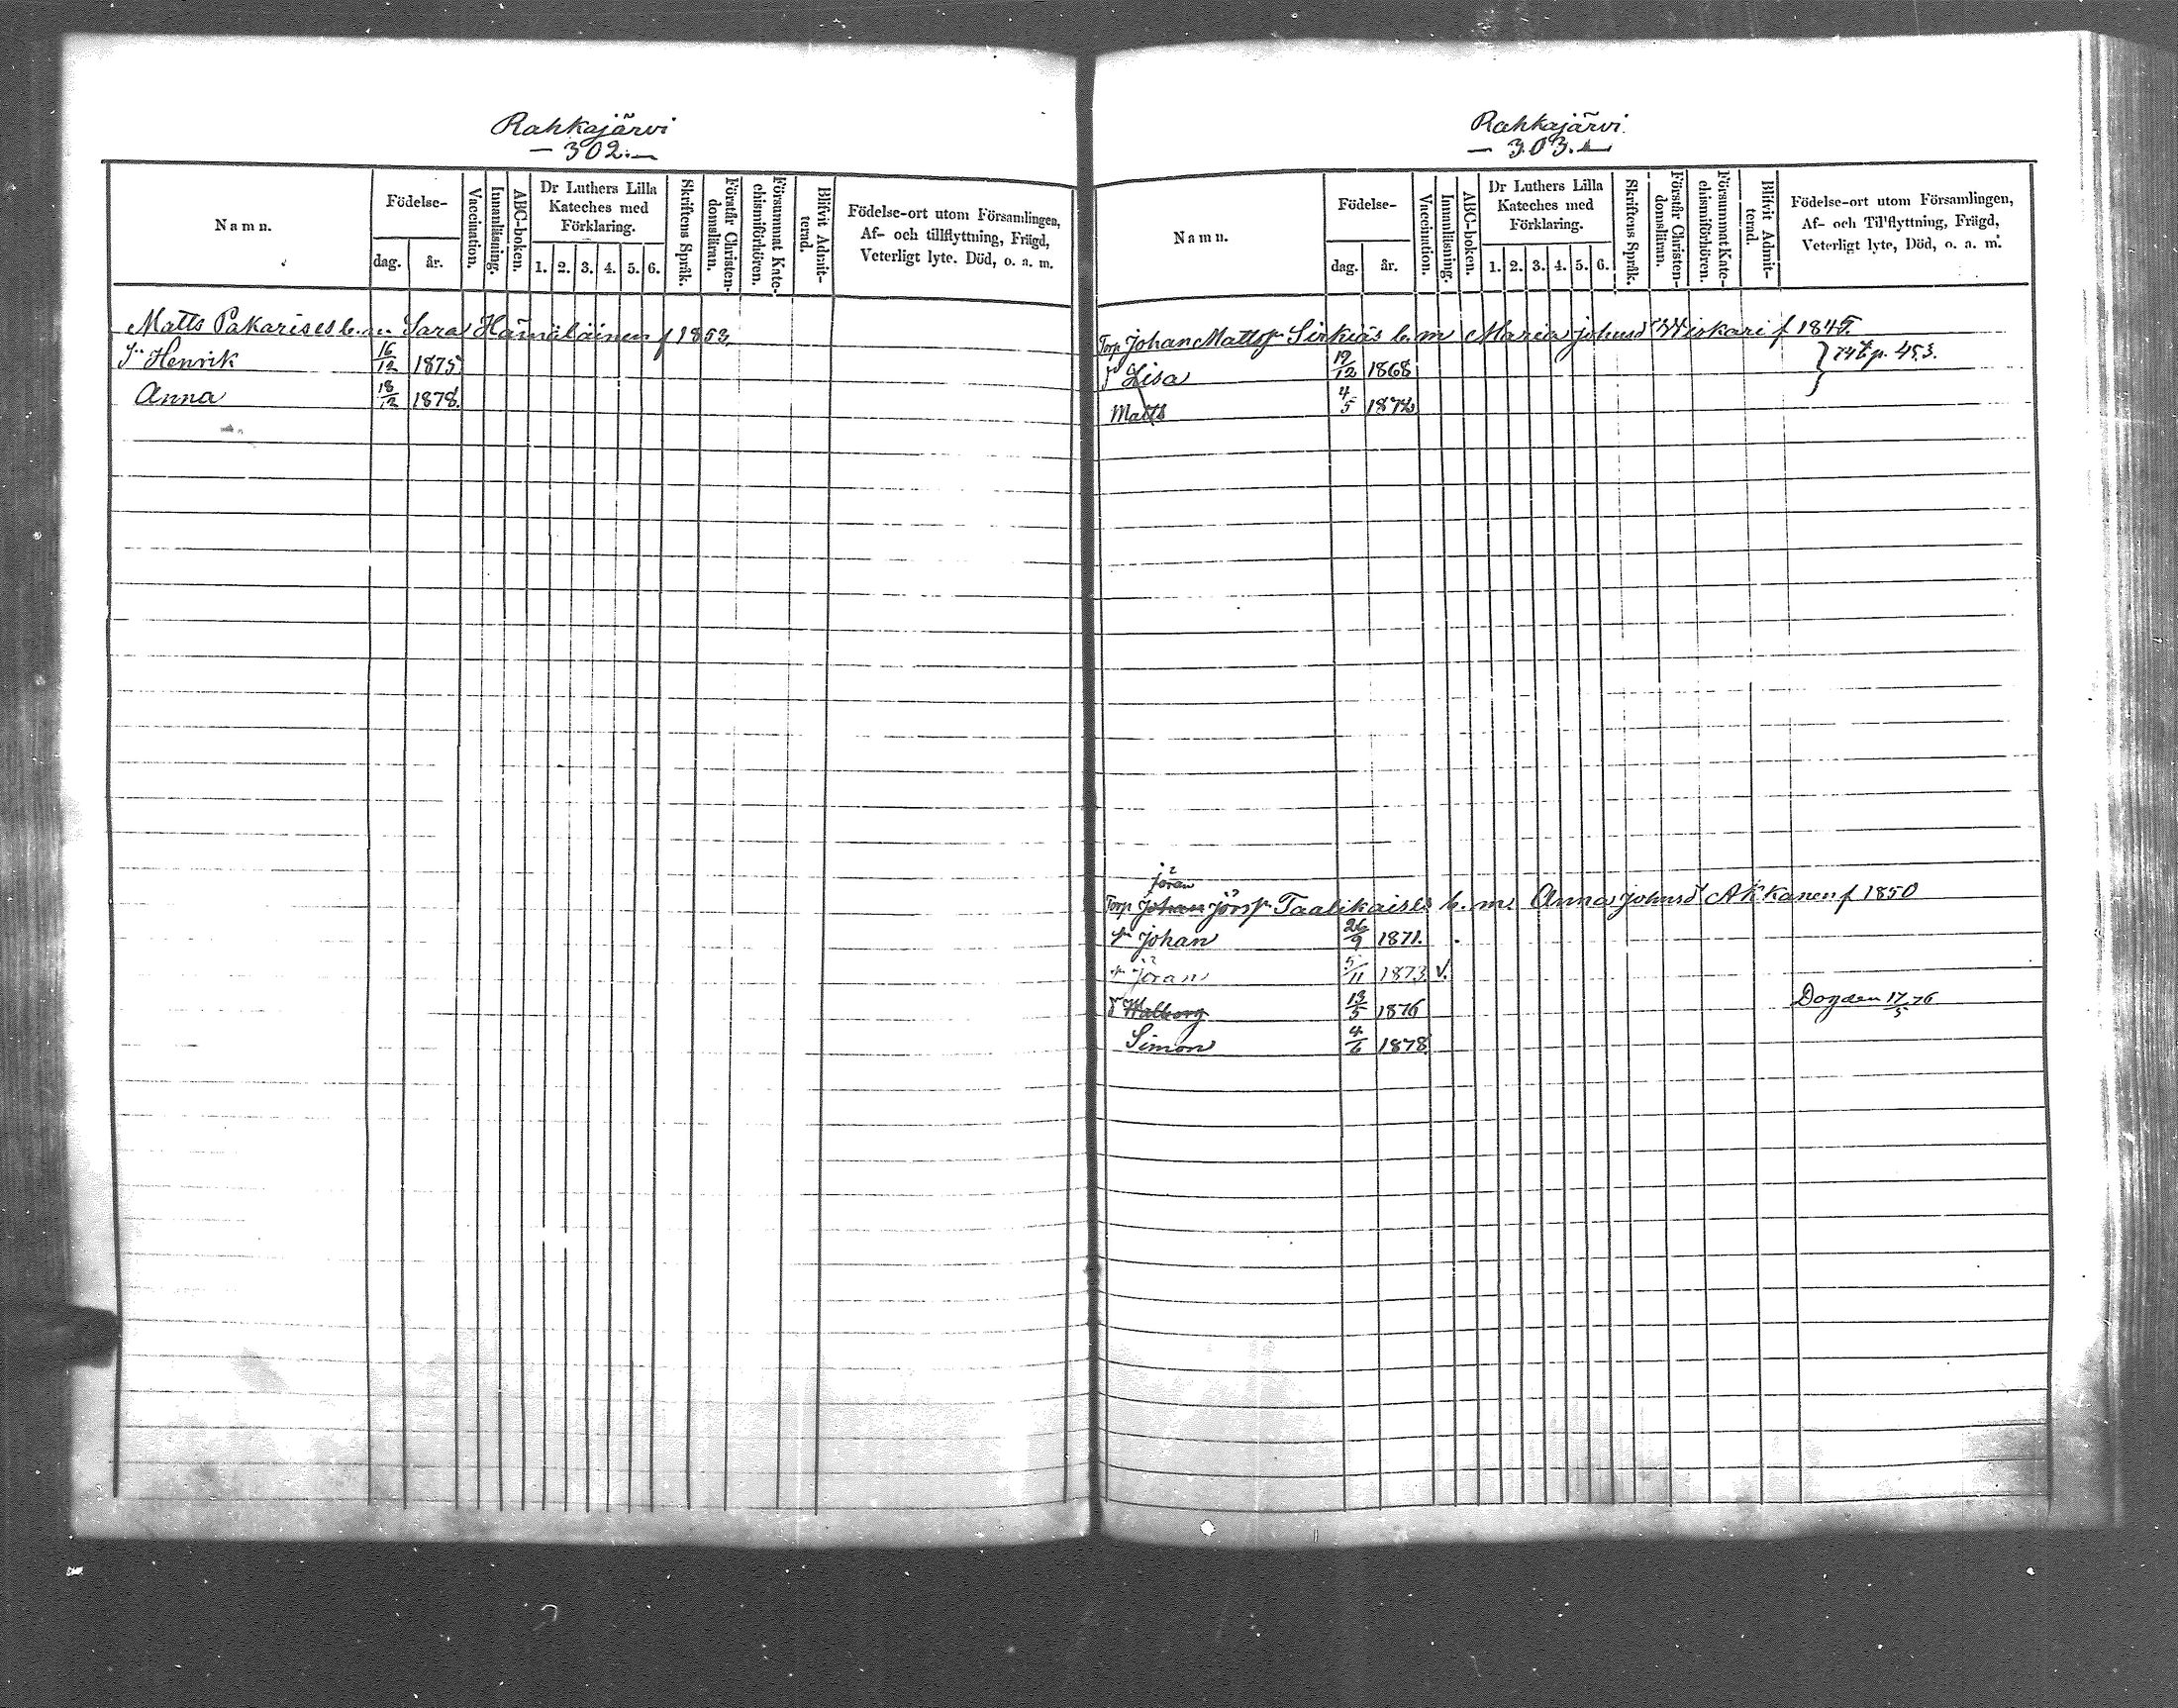 Rahkajärvi
— 302. —
Namn.
Födelse-
dag.
år.
Vaccination.
Innanläsning.
ABC-boken.
Dr Luthers Lilla
Kateches med
Förklaring.
1. 2. 3. 4. 5. 6.
Skriftens Språk.
Förstår Christen-
domsläran.
Försummat Kate-
chismiförhören.
Blifvit Admit-
terad.
Födelse-ort utom Församlingen,
Af- och tillflyttning, Frägd,
Veterligt lyte. Död, o. a. m.
Matts Pakarises b. m. Sara Hämäläinen f 1853.
Henrik 16/12 1875
Anna 18/12 1878.
Rahkajärvi.
— 303. —
Namn.
Födelse-
dag.
år.
Vaccination.
Innanläsning.
ABC-boken.
Dr Luthers Lilla
Kateches med
Förklaring.
1. 2. 3. 4. 5. 6.
Skriftens Språk.
Förstår Christen-
domsläran.
Försummat Kate-
chismiförhören.
Blifvit Admit-
terad.
Födelse-ort utom Församlingen,
Af- och Tillflyttning, Frägd,
Veterligt lyte, Död, o. a. m.
Torp Johan Mattsp Sirkiäs b. m Maria Johnsd Hiskari f 1845.
Lisa 19/12 1868 p. 453.
Matts 4/5
Jöran
Torp Johan Jörsp Taalikaises b. m. Anna Johnsd Akkanen f 1850
Johan 26/9 1871.
Jöran 5/11 1873. v.
Walborg 13/5 1876 17/5 76
Simon 4/6 1878